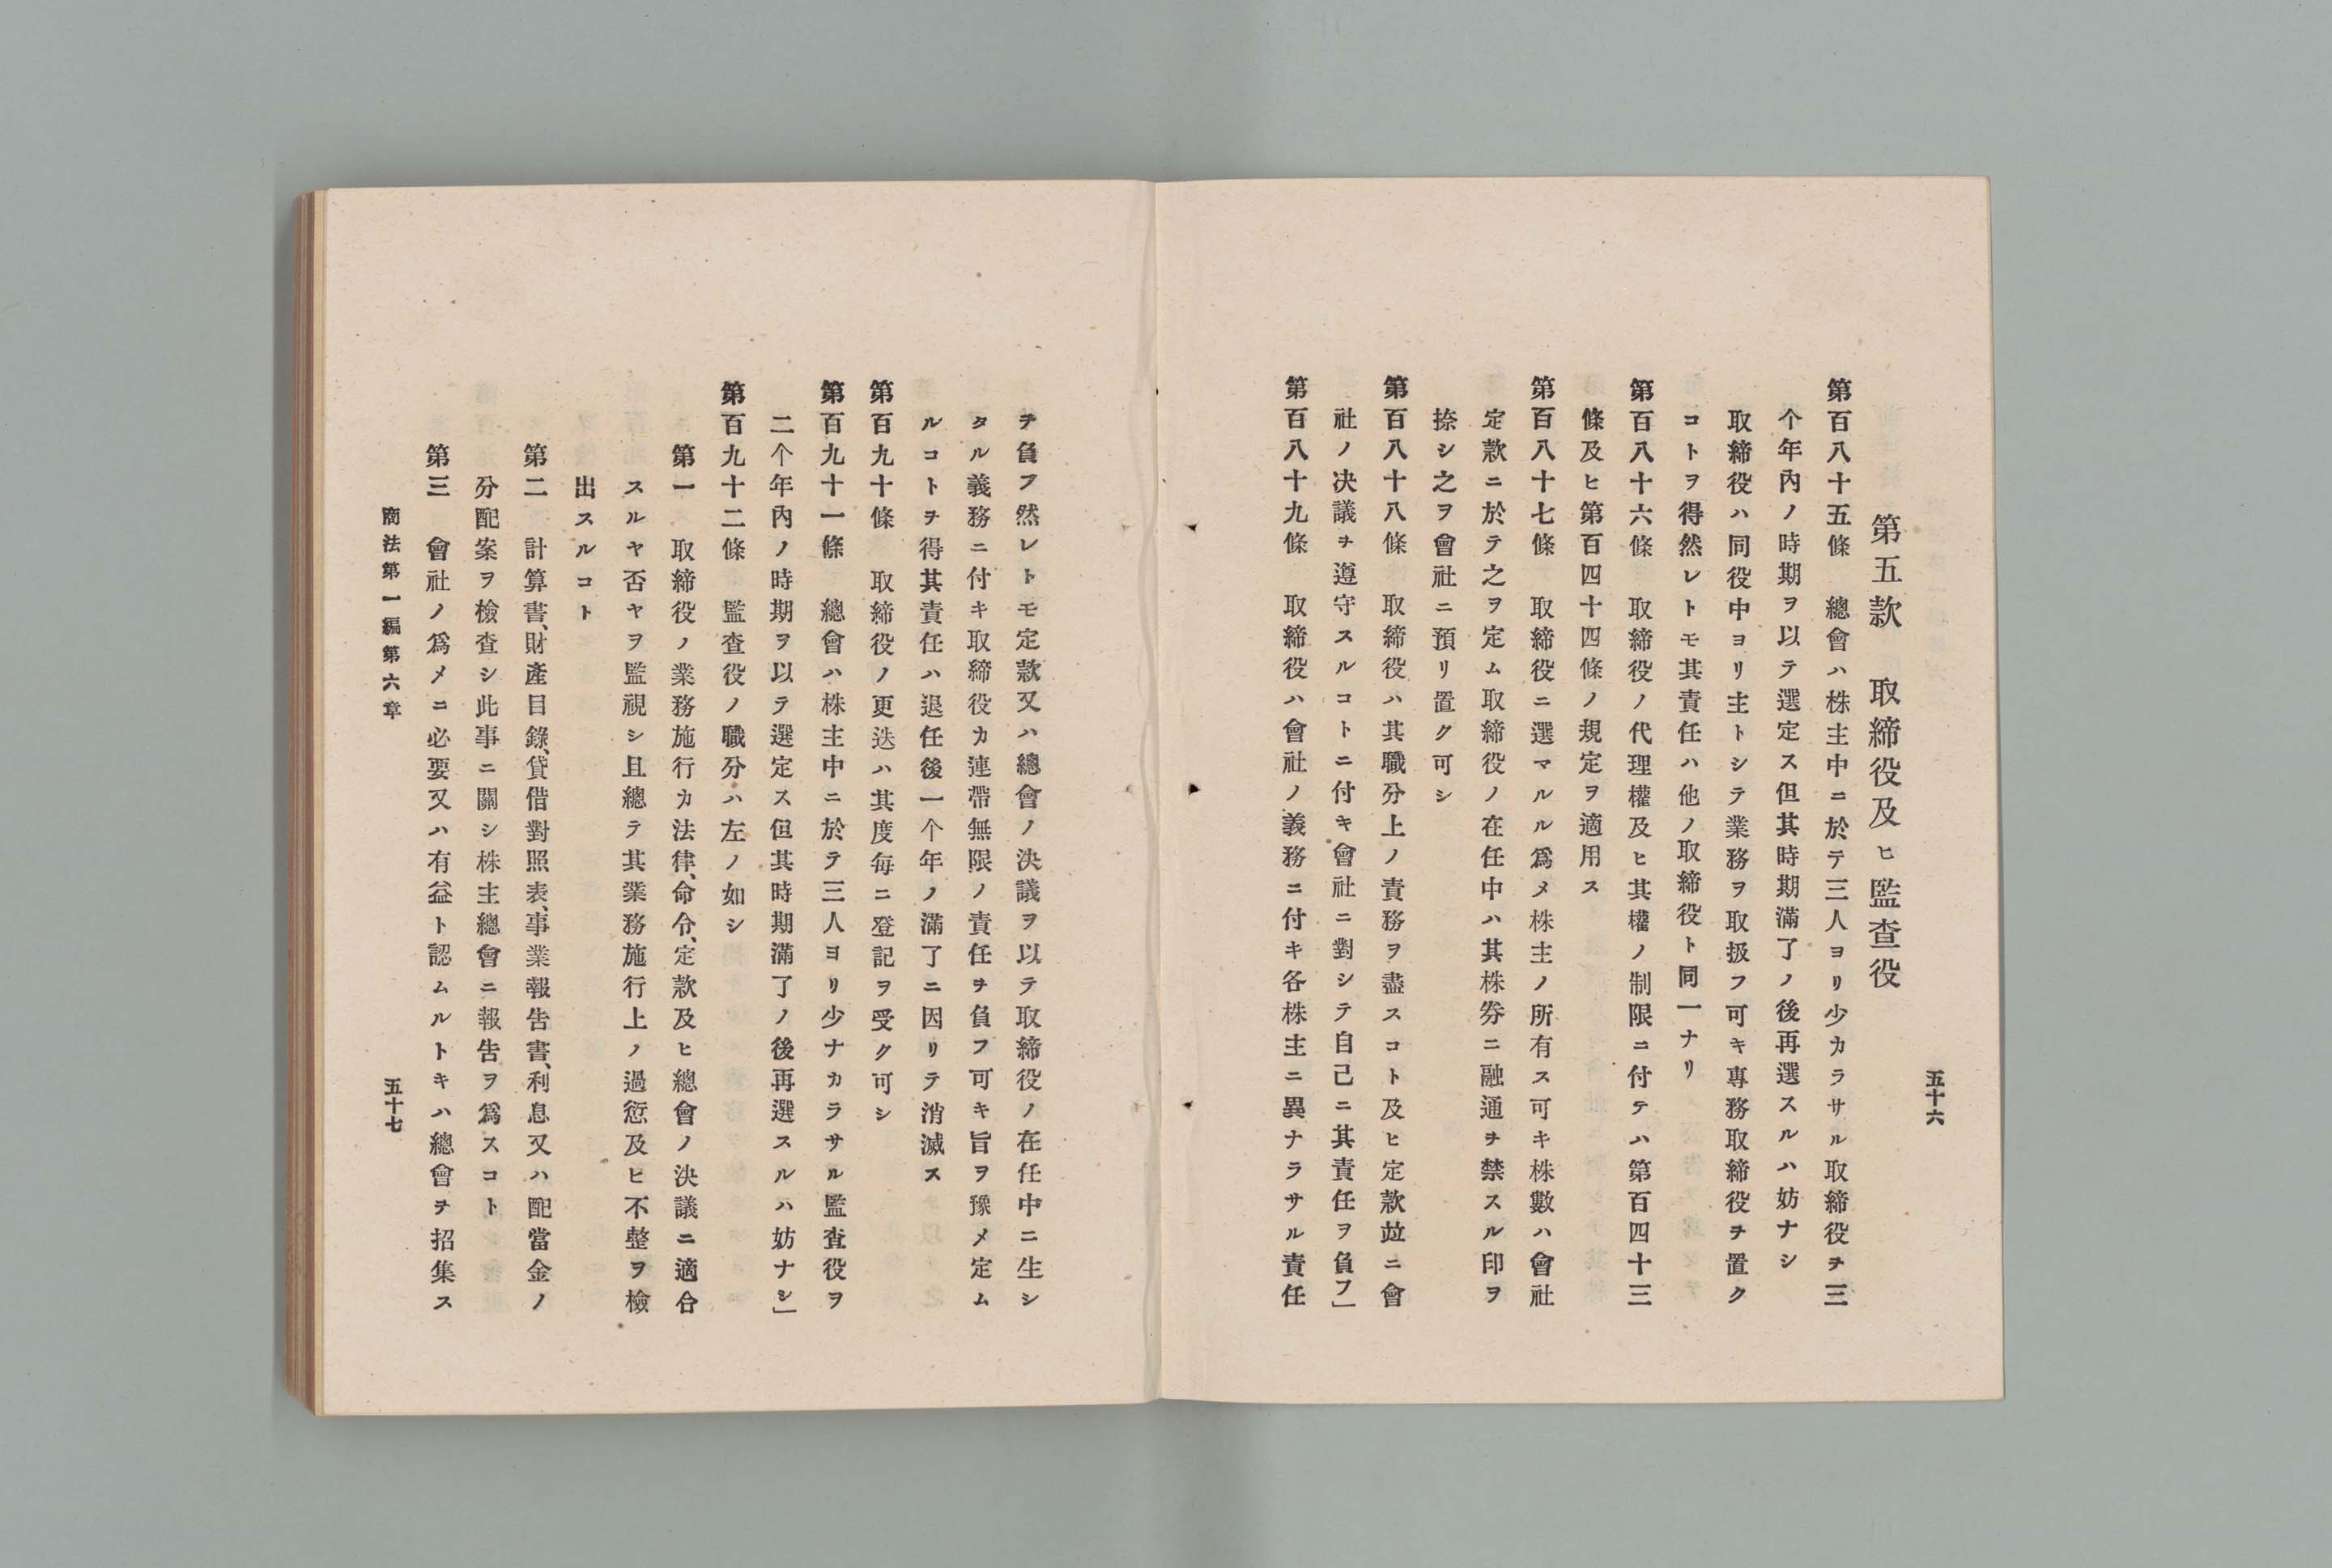 五十六
第五款　取締役及ヒ監査役
第百八十五條　總會ハ株主中ニ於テ三人ヨリ少カラサル取締役ヲ三
个年內ノ時期ヲ以テ選定ス但其時期滿了ノ後再選スルハ妨ナシ
取締役ハ同役中ヨリ主トシテ業務ヲ取扱フ可キ專務取締役ヲ置ク
コトヲ得然レトモ其責任ハ他ノ取締役ト同一ナリ
第百八十六條　取締役ノ代理權及ヒ其權ノ制限ニ付テハ第百四十三
條及ヒ第百四十四條ノ規定ヲ適用ス
第百八十七條　取締役ニ選マルル爲メ株主ノ所有ス可キ株數ハ會社
定款ニ於テ之ヲ定ム取締役ノ在任中ハ其株劵ニ融通ヲ禁スル印ヲ
捺シ之ヲ會社ニ預リ置ク可シ
第百八十八條　取締役ハ其職分上ノ責務ヲ盡スコト及ヒ定款竝ニ會
社ノ決議ヲ遵守スルコトニ付キ會社ニ對シテ自己ニ其責任ヲ負フ」
第百八十九條　取締役ハ會社ノ義務ニ付キ各株主ニ異ナラサル責任
ヲ負フ然レトモ定款又ハ總會ノ決議ヲ以テ取締役ノ在任中ニ生シ
タル義務ニ付キ取締役カ連帶無限ノ責任ヲ負フ可キ旨ヲ豫メ定ム
ルコトヲ得其責任ハ退任後一个年ノ滿了ニ因リテ消滅ス
第百九十條　取締役ノ更迭ハ其度每ニ登記ヲ受ク可シ
第百九十一條　總會ハ株主中ニ於テ三人ヨリ少ナカラサル監查役ヲ
二个年內ノ時期ヲ以テ選定ス但其時期滿了ノ後再選スルハ妨ナシ」
第百九十二條　監查役ノ職分ハ左ノ如シ
第一　取締役ノ業務施行カ法律、命令、定款及ヒ總會ノ決議ニ適合
スルヤ否ヤヲ監視シ且總テ其業務施行上ノ過愆及ヒ不整ヲ檢
出スルコト
第二　計算書、財產目錄、貸借對照表、事業報吿書、利息又ハ配當金ノ
分配案ヲ檢查シ此事ニ關シ株主總會ニ報吿ヲ爲スコト
第三　會社ノ爲メニ必要又ハ有益ト認ムルトキハ總會ヲ招集ス
商法第一編第六章
五十七